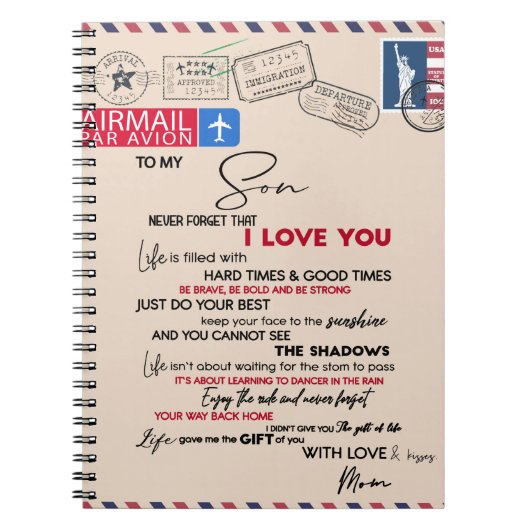 ARRIVAL
12345
APPROVED
12345
12345
IMMIGRATION
DEPARTURE
APPROVED
USA
AIRMAIL
PAR AVION
TO MY
Son
NEVER FORGET THAT
I LOVE YOU
Life is filled with
HARD TIMES & GOOD TIMES
BE BRAVE, BE BOLD AND BE STRONG
JUST DO YOUR BEST
keep your face to the sunshine
AND YOU CANNOT SEE
THE SHADOWS
Life isn't about waiting for the stom to pass
IT'S ABOUT LEARNING TO DANCER IN THE RAIN
Enjoy the ride and never forget
YOUR WAY BACK HOME
I DIDN'T GIVE YOU The gift of life
Life gave me the GIFT of you
WITH LOVE & kisses,
Mom